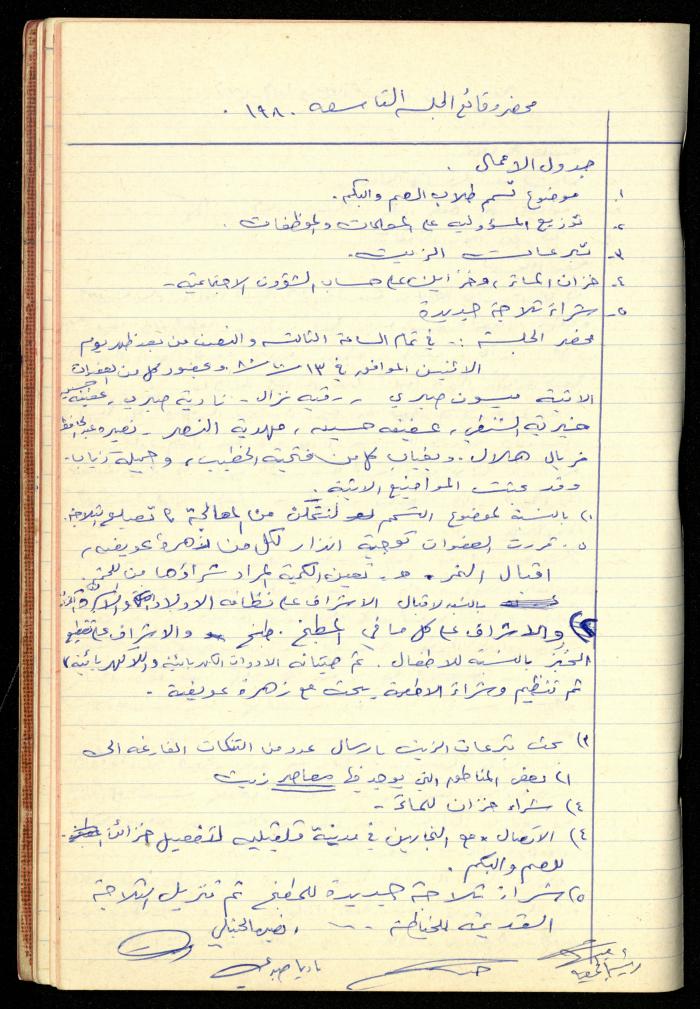 محضر وقائع الجلسه التاسعه ١٩٨٠.
جدول الاعمال.
١. موضوع تسمم طلاب الصم والبكم.
٢. توزيع المسؤوليه على المعلمات والموظفات.
٣- تبرعات الزيت.
٤- خزان الماء، وخزاين على حساب الشؤون الاجتماعية -
٥- شراء ثلاجة جديدة
محضر الجلسة :- في تمام الساعة الثالثه والنصف من بعد ظهر يوم
الاثنين الموافق في ١٣ وبحضور كل من العضوات
الاتية ميسون صبري، رقيه نزال - نادية صبري،
خيرية الشنطي، عفيفه حسين، مهدية النصر - نصيره عبد الحافظ
فريال هلال. وبغياب كل من فتحية الخطيب، وجميلة ذياب.
وقد بحثت المواضيع الاتية.
١) بالنسبة لموضوع التسمم لنتمكن من المعالجة تصليح الثلاجة.
٥. قررت العضوات توجية انذار لكل من زهرة عويضه،
اقبال النمر. تعين الكمية المراد شراؤها من اللحم.
بالنسبه لاقبال الاشراف على نظافه الاولاد
٢) والاشراف على كل ما في المطبخ. طبخ والاشراف على تقطيع
الخبز بالنسبة للاطفال. ثم صيانه الادوات الكهربائية واللاكهربائية،
ثم تنظيم وشراء الاطعمة. بحث مع زهرة عويضة -
٣) بحث تبرعات الزيت بارسال عدد من التنكات الفارغه الى
١) بعض المناطق التي يوجد فيها معاصر زيت
٤) شراء خزان للماء -
٤) الاتصال مع النجارين في مدينة قلقيليه لتفصيل خزائن
للصم والبكم.
٥) شراء ثلاجة جديدة للمطبخ ثم تنزيل الثلاجة
القديمة للخياطة ---
نصيره
ناديا صبري